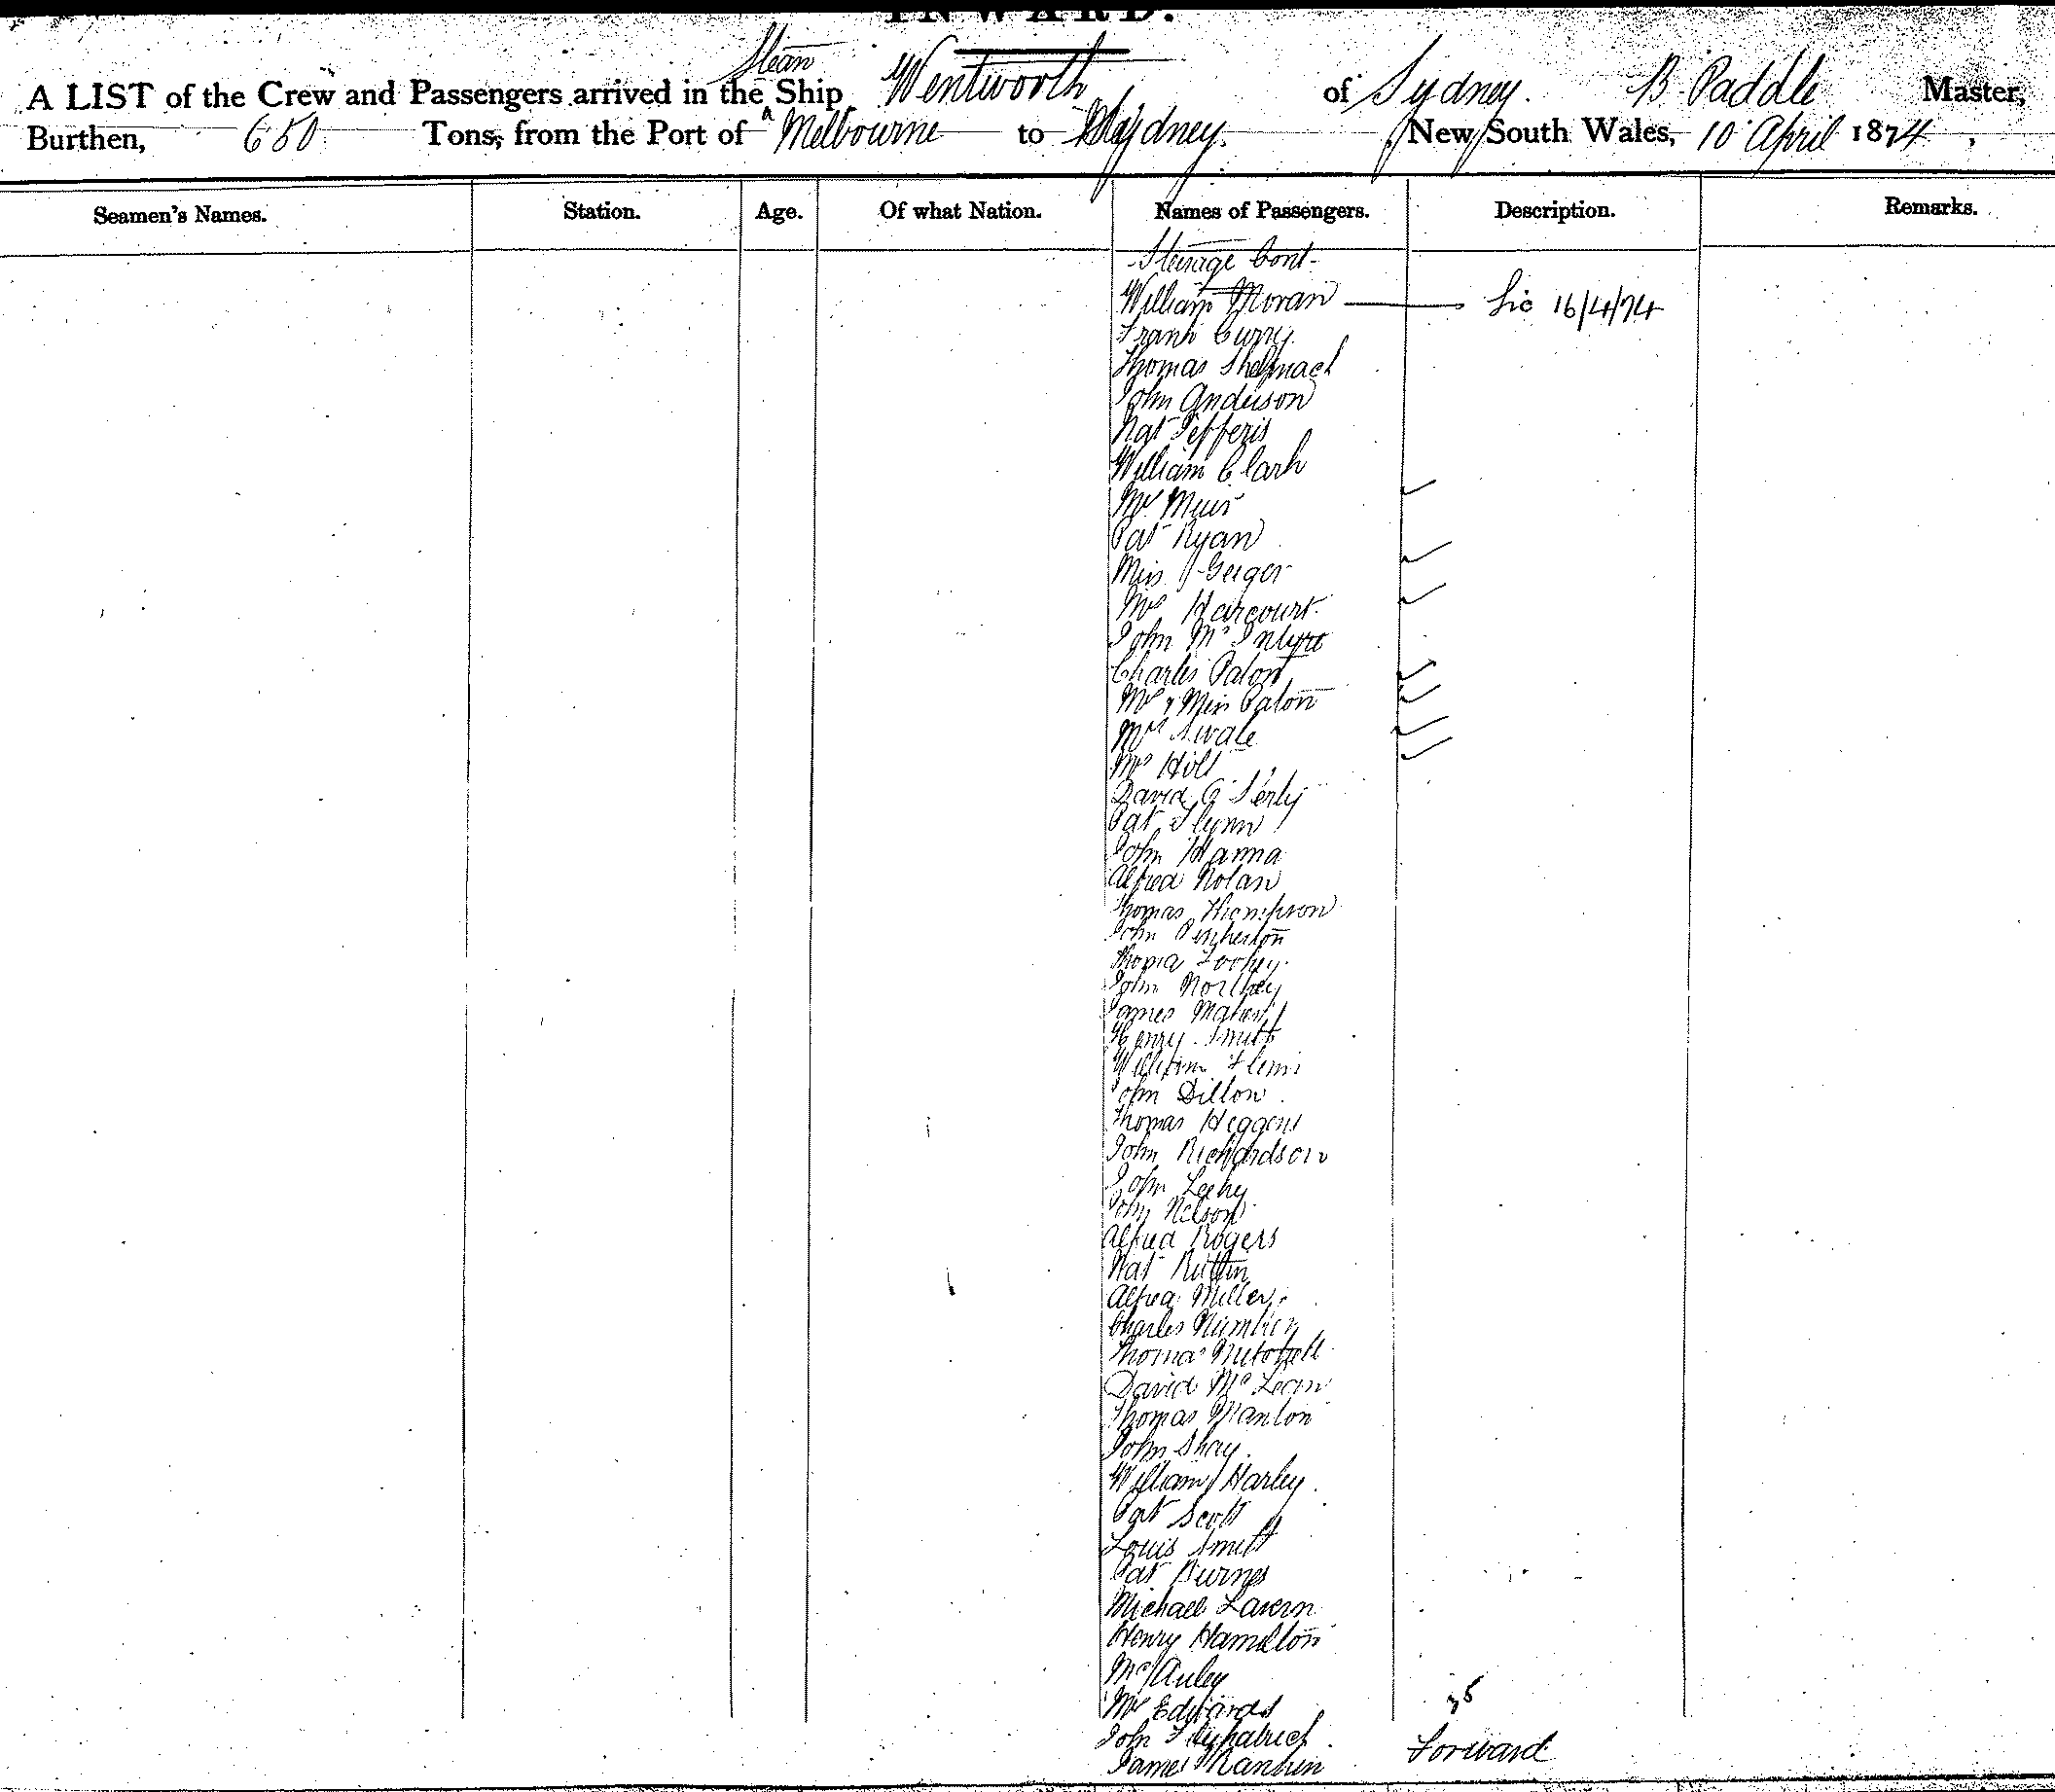 INWARD.
A LIST of the Crew and Passengers arrived in the Steam Ship Wentworth of Sydney. B Paddle Master,
Burthen, 650 Tons, from the Port of Melbourne to Sydney. New South Wales, 10 April 1874,
Seamen's Names. Station. Age. Of what Nation. Names of Passengers. Description. Remarks.
Steerage Cont
William Moran Lic 16/4/74
Frank Curry
Thomas
John Anderson
Nat Jefferis
William Clark
Mrs Muir
Pat Ryan
Miss Geiger
Mrs Harcourt
John McIntyre
Charles Paton
Mrs & Miss Paton
Mrs Swale
Mrs Holt
David
Pat Flynn
John Hanna
Alfred Nolan
Thomas Thompson
John
Thomas
John Northey
James Maher
Henry Smith
William
John Dillon
Thomas Heggens
John Richardson
John Leehy
John Nilson
Alfred Rogers
Nat
Alfred Miller
Charles
Thomas Mitchell
David McLean
Thomas Manton
John Shay
William Harley
Pat Scott
Louis Smith
Pat Burnes
Michael Lavern
Henry Hamilton
McAuley
Mrs Edwards
John Fitzpatrick
James Forward